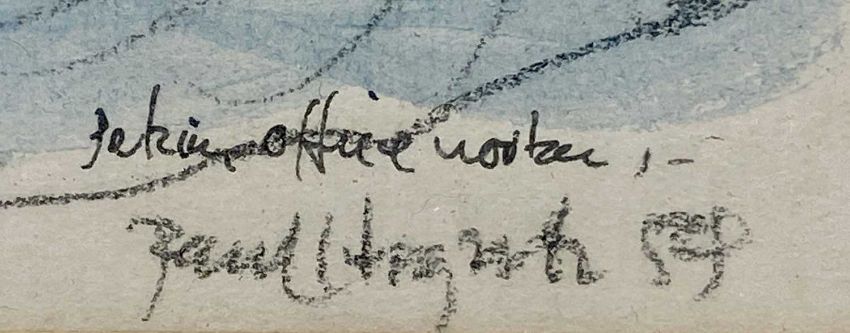 Pekin office worker,-
Paul Hogarth 54